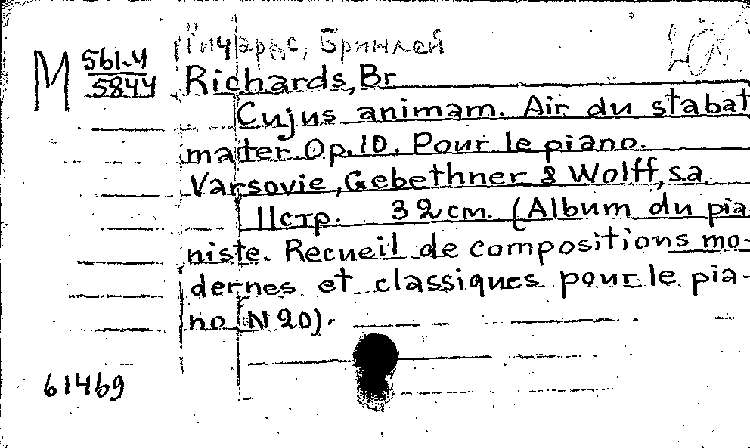 Ричардс, Бринлей
M 561-4
5844
Richards, Br
Cujus animam. Air du stabat
mater Op.10. Pour le piano.
Varsovie, Gebethner & Wolff, s.a.
11стр. 32cm. (Album du pia
niste. Recueil de compositions mo-
dernes et classiques pour le pia-
no N 20).
61469